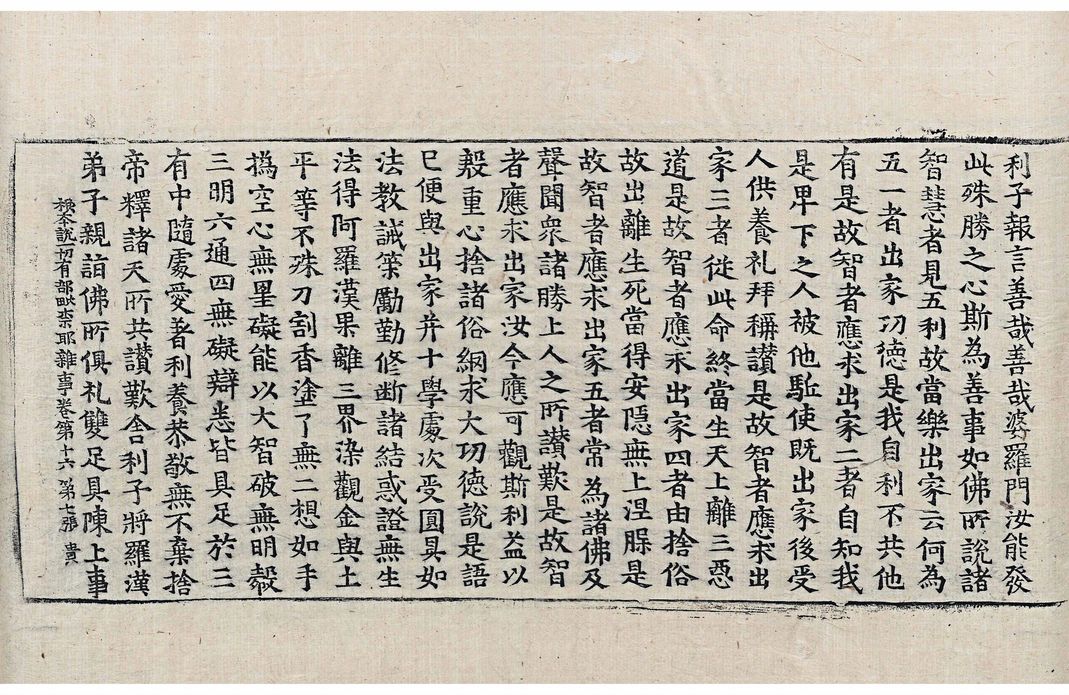 利子報言善哉善哉婆羅門汝能發
此殊勝之心斯為善事如佛所說諸
智慧者見五利故當樂出家云何為
五一者出家功德是我自利不共他
有是故智者應求出家二者自知我
是卑下之人被他駈使既出家後受
人供養礼拜稱讃是故智者應求出
家三者從此命終當生天上離三惡
道是故智者應求出家四者由捨俗
故出離生死當得安隱無上涅槃是
故智者應求出家五者常為諸佛及
聲聞衆諸勝上人之所讃歎是故智
者應求出家汝今應可觀斯利益以
殷重心捨諸俗網求大功德說是語
已便與出家并十學處次受圓具如
法教誡策勵勤修断諸結惑證無生
法得阿羅漢果離三界染觀金與土
平等不殊刀割香塗了無二想如手
撝空心無罣礙能以大智破無明㲉
三明六通四無礙辯悉皆具足於三
有中隨處愛著利養恭敬無不棄捨
帝釋諸天所共讃歎舍利子將羅漢
弟子親詣佛所俱礼雙足具陳上事
根本說一切有部毗柰耶雜事卷第十六 第七張 貴